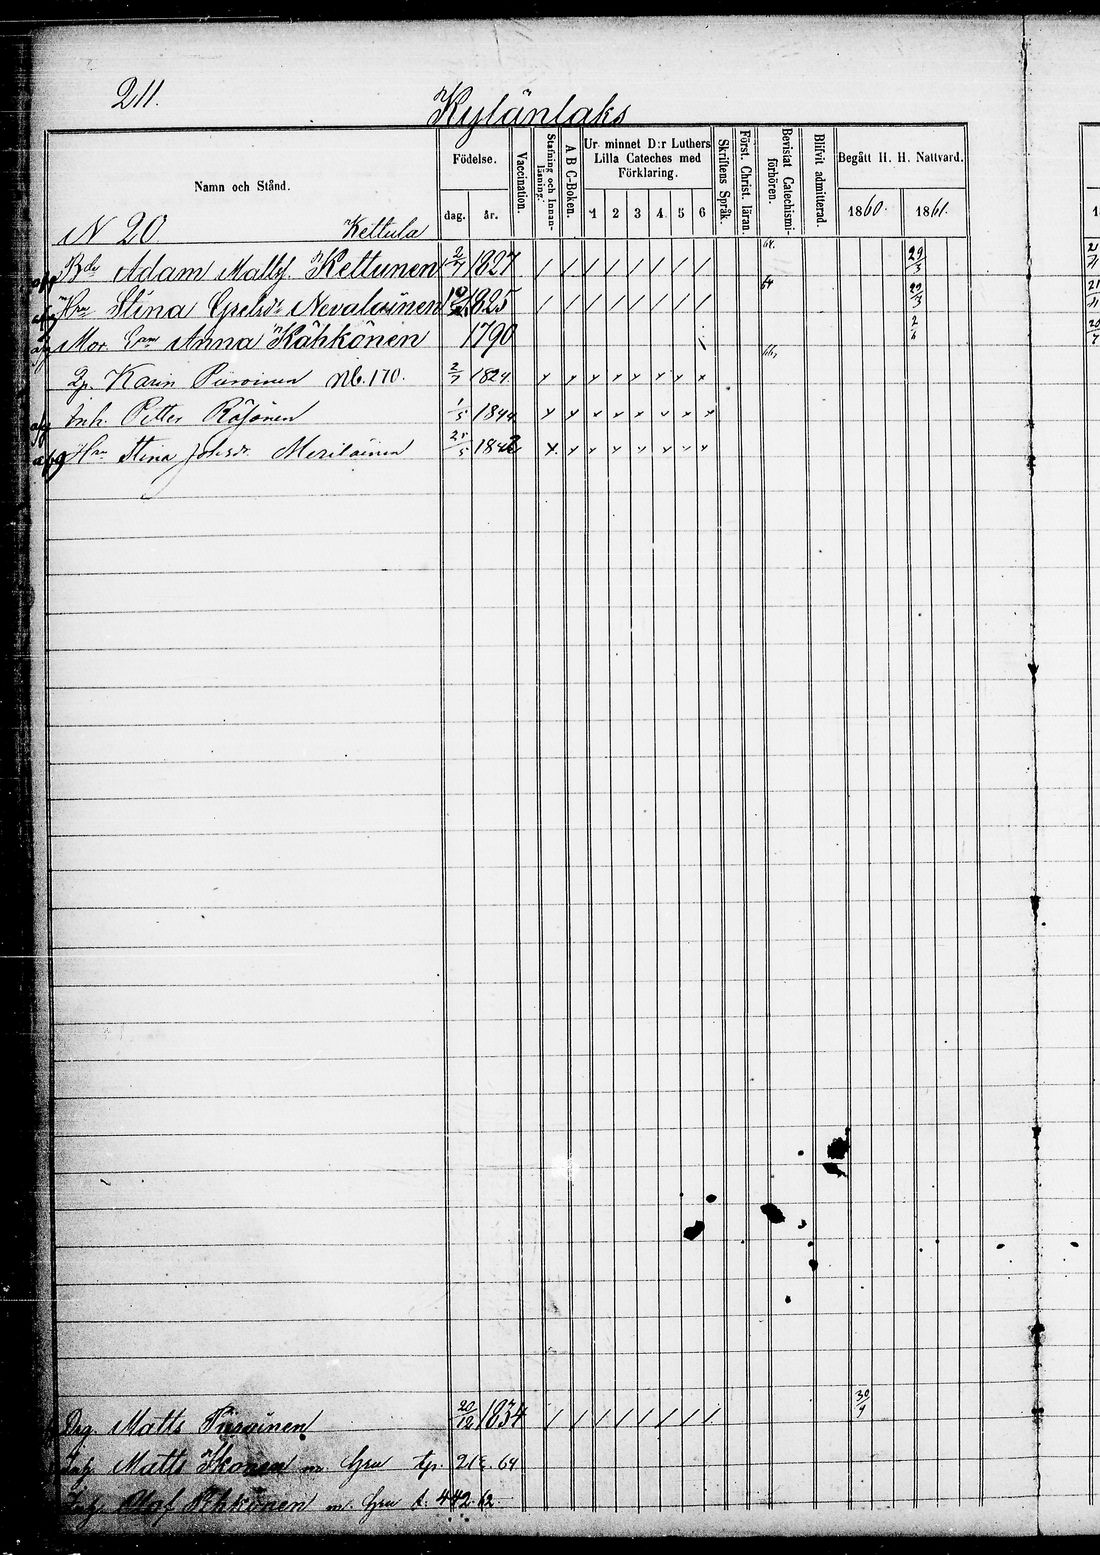 211.
Kylänlaks
Namn och Stånd.
Födelse.
dag. år.
Vaccination.
Stafning och Innanläsning.
A B C-Boken.
Ur minnet D:r Luthers Lilla Cateches med Förklaring.
1 2 3 4 5 6
Skriftens Språk.
Först. Christ. läran.
Bevistat Catechismiförhören.
Blifvit admitterad.
Begått H. H. Nattvard.
1860. 1861.
N 20. Kettula
Adam Matts Kettunen 2/7 1827 / / / / / / / / 29/3
Stina Nevalainen 1825 / / / / / / / / 64 29/3
Mor Anna Kähkönen 1790 2/6
Karin Piiroinen Nb. 170. 2/7 1824. x x x x x x x x
Inh. Petter Räsänen 1/5 1844 x x x x x x x x
afg Hru Stina Johsdr Meriläinen 25/5 1842 x x x x x x x x
Drg. Matts Piiroinen 20/12 1834 / / / / / / / / 30/9
Inh. Matts Ikonen m. hru tp. 64
Inh. Olof m. hru t. 442. 62